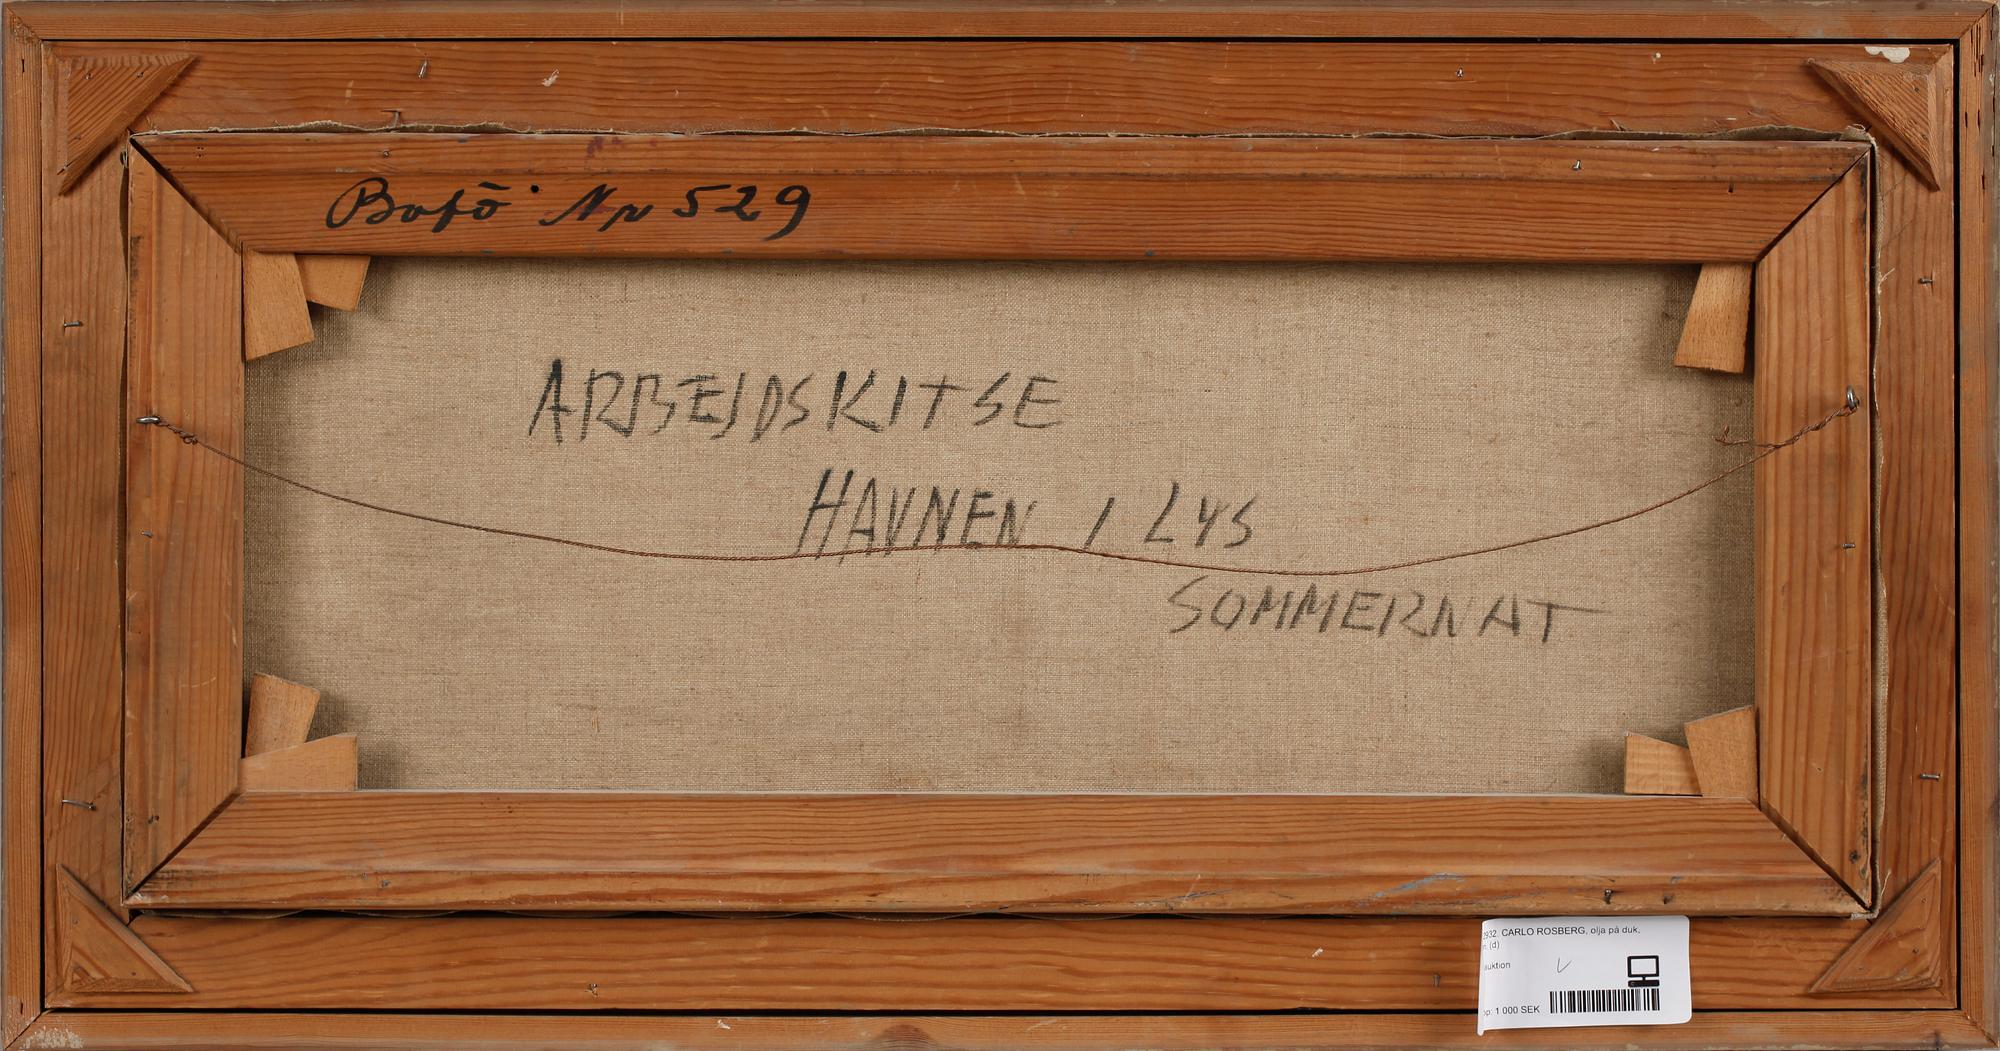 Bofö Nr 529
ARBEJDSKITSE
HAVNEN I LYS
SOMMERNAT
2932, CARLO ROSBERG, olja på duk,
n. (d)
auktion
op: 1 000 SEK